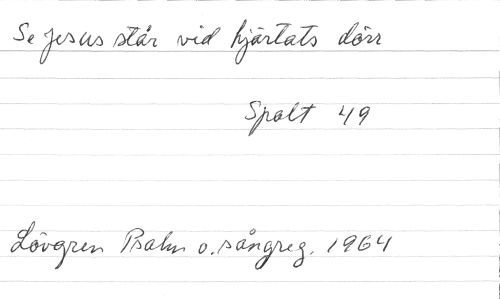 Se Jesus står vid hjärtats dörr
Spalt 49
Lövgren Psalm o. sångreg. 1964